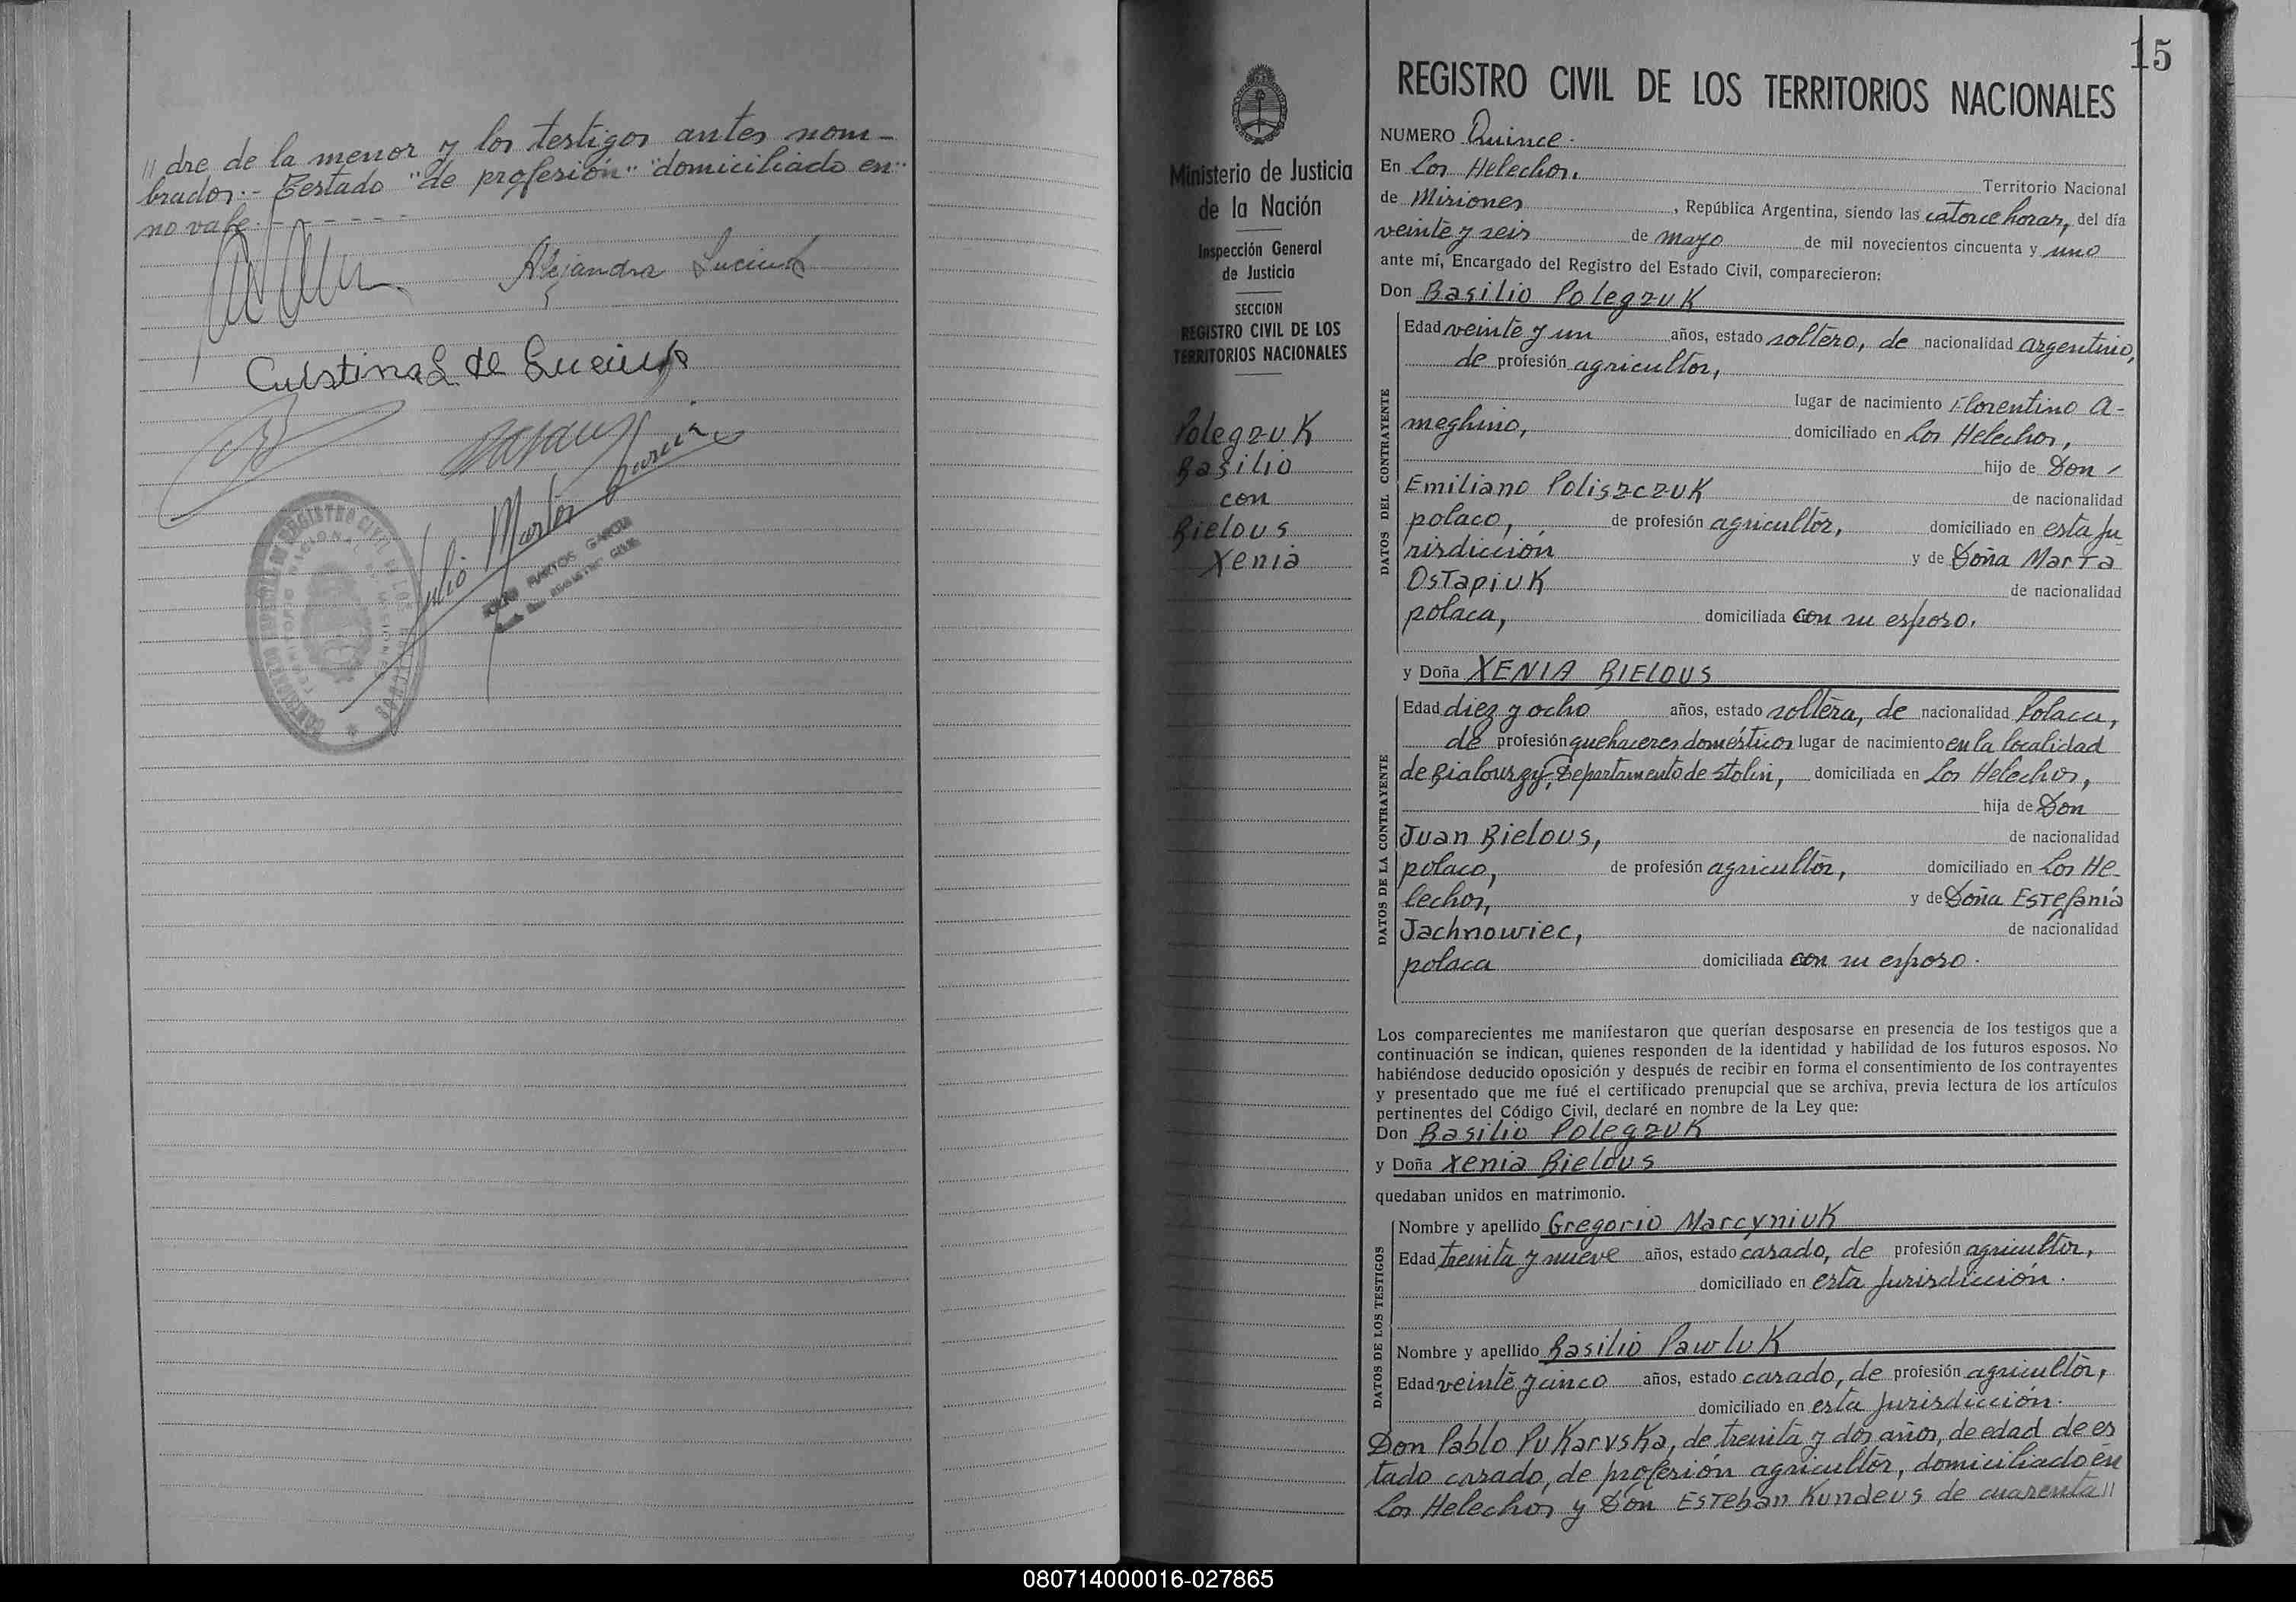 // dre de la menor y los testigos antes nom-
brados.- Testado "de profesión" "domiciliado en"
no vale.- - - - - - -
Alejandra Luciuk
Cristina L. de Luciuk
Julio Martos García
MARTOS GARCIA
15
REGISTRO CIVIL DE LOS TERRITORIOS NACIONALES
Ministerio de Justicia
de la Nación
Inspección General
de Justicia
SECCION
REGISTRO CIVIL DE LOS
TERRITORIOS NACIONALES
Polegzuk
Basilio
con
Bielous
Xenia
NUMERO Quince.
En Los Helechos, Territorio Nacional
de Misiones, República Argentina, siendo las catorce horas, del día
veinte y seis de mayo de mil novecientos cincuenta y uno
ante mí, Encargado del Registro del Estado Civil, comparecieron:
Don Basilio Polegzuk
DATOS DEL CONTRAYENTE
Edad veinte y un años, estado soltero, de nacionalidad argentino,
de profesión agricultor,
lugar de nacimiento Florentino A-
meghino, domiciliado en Los Helechos,
hijo de Don /
Emiliano Poliszczuk de nacionalidad
polaco, de profesión agricultor, domiciliado en esta ju
risdicción y de Doña Marta
Ostapiuk de nacionalidad
polaca, domiciliada con su esposo.
y Doña XENIA BIELOUS
DATOS DE LA CONTRAYENTE
Edad diez y ocho años, estado soltera, de nacionalidad Polaca,
de profesión quehaceres domésticos lugar de nacimiento en la localidad
de Bialouszy, Departamento de Stolin, domiciliada en Los Helechos,
hija de Don
Juan Bielous, de nacionalidad
polaco, de profesión agricultor, domiciliado en Los He-
lechos, y de Doña Estefanía
Jachnowiec, de nacionalidad
polaca domiciliada con su esposo.
Los comparecientes me manifestaron que querían desposarse en presencia de los testigos que a
continuación se indican, quienes responden de la identidad y habilidad de los futuros esposos. No
habiéndose deducido oposición y después de recibir en forma el consentimiento de los contrayentes
y presentado que me fué el certificado prenupcial que se archiva, previa lectura de los artículos
pertinentes del Código Civil, declaré en nombre de la Ley que:
Don Basilio Polegzuk
y Doña Xenia Bielous
quedaban unidos en matrimonio.
DATOS DE LOS TESTIGOS
Nombre y apellido Gregorio Marcyniuk
Edad treinta y nueve años, estado casado, de profesión agricultor,
domiciliado en esta jurisdicción.
Nombre y apellido Basilio Pawluk
Edad veinte y cinco años, estado casado, de profesión agricultor,
domiciliado en esta jurisdicción.
Don Pablo Pukarvska, de treinta y dos años, de edad de es
tado casado, de profesión agricultor, domiciliado en
Los Helechos y Don Esteban Kundeus de cuarenta //
080714000016-027865